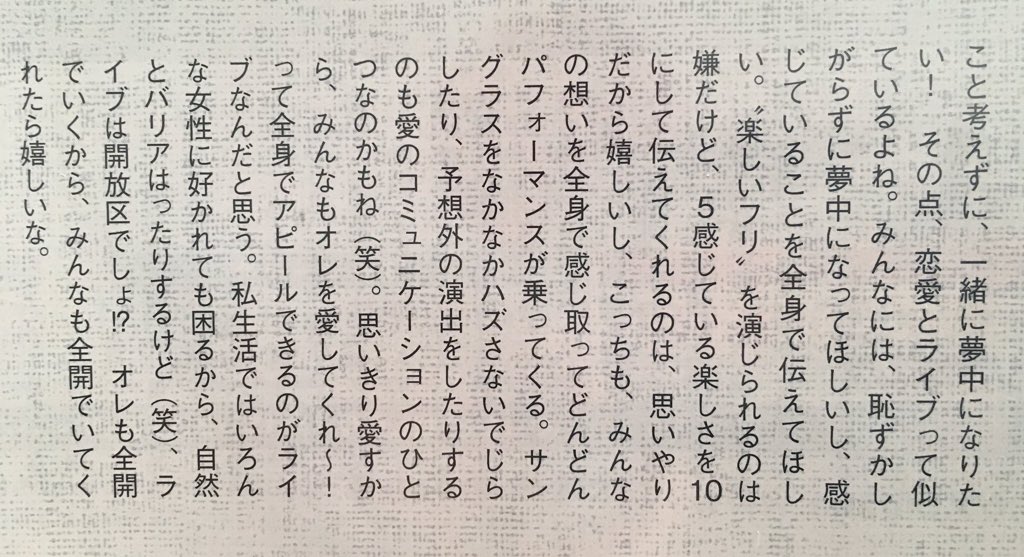 こと考えずに、一緒に夢中になりた
い！　その点、恋愛とライブって似
ているよね。みんなには、恥ずかし
がらずに夢中になってほしいし、感
じていることを全身で伝えてほし
い。〝楽しいフリ〟を演じられるのは
嫌だけど、5感じている楽しさを10
にして伝えてくれるのは、思いやり
だから嬉しいし、こっちも、みんな
の想いを全身で感じ取ってどんどん
パフォーマンスが乗ってくる。サン
グラスをなかなかハズさないでじら
したり、予想外の演出をしたりする
のも愛のコミュニケーションのひと
つなのかもね（笑）。思いきり愛すか
ら、みんなもオレを愛してくれ〜！
って全身でアピールできるのがライ
ブなんだと思う。私生活ではいろん
な女性に好かれても困るから、自然
とバリアはったりするけど（笑）、ラ
イブは開放区でしょ!?　オレも全開
でいくから、みんなも全開でいてく
れたら嬉しいな。